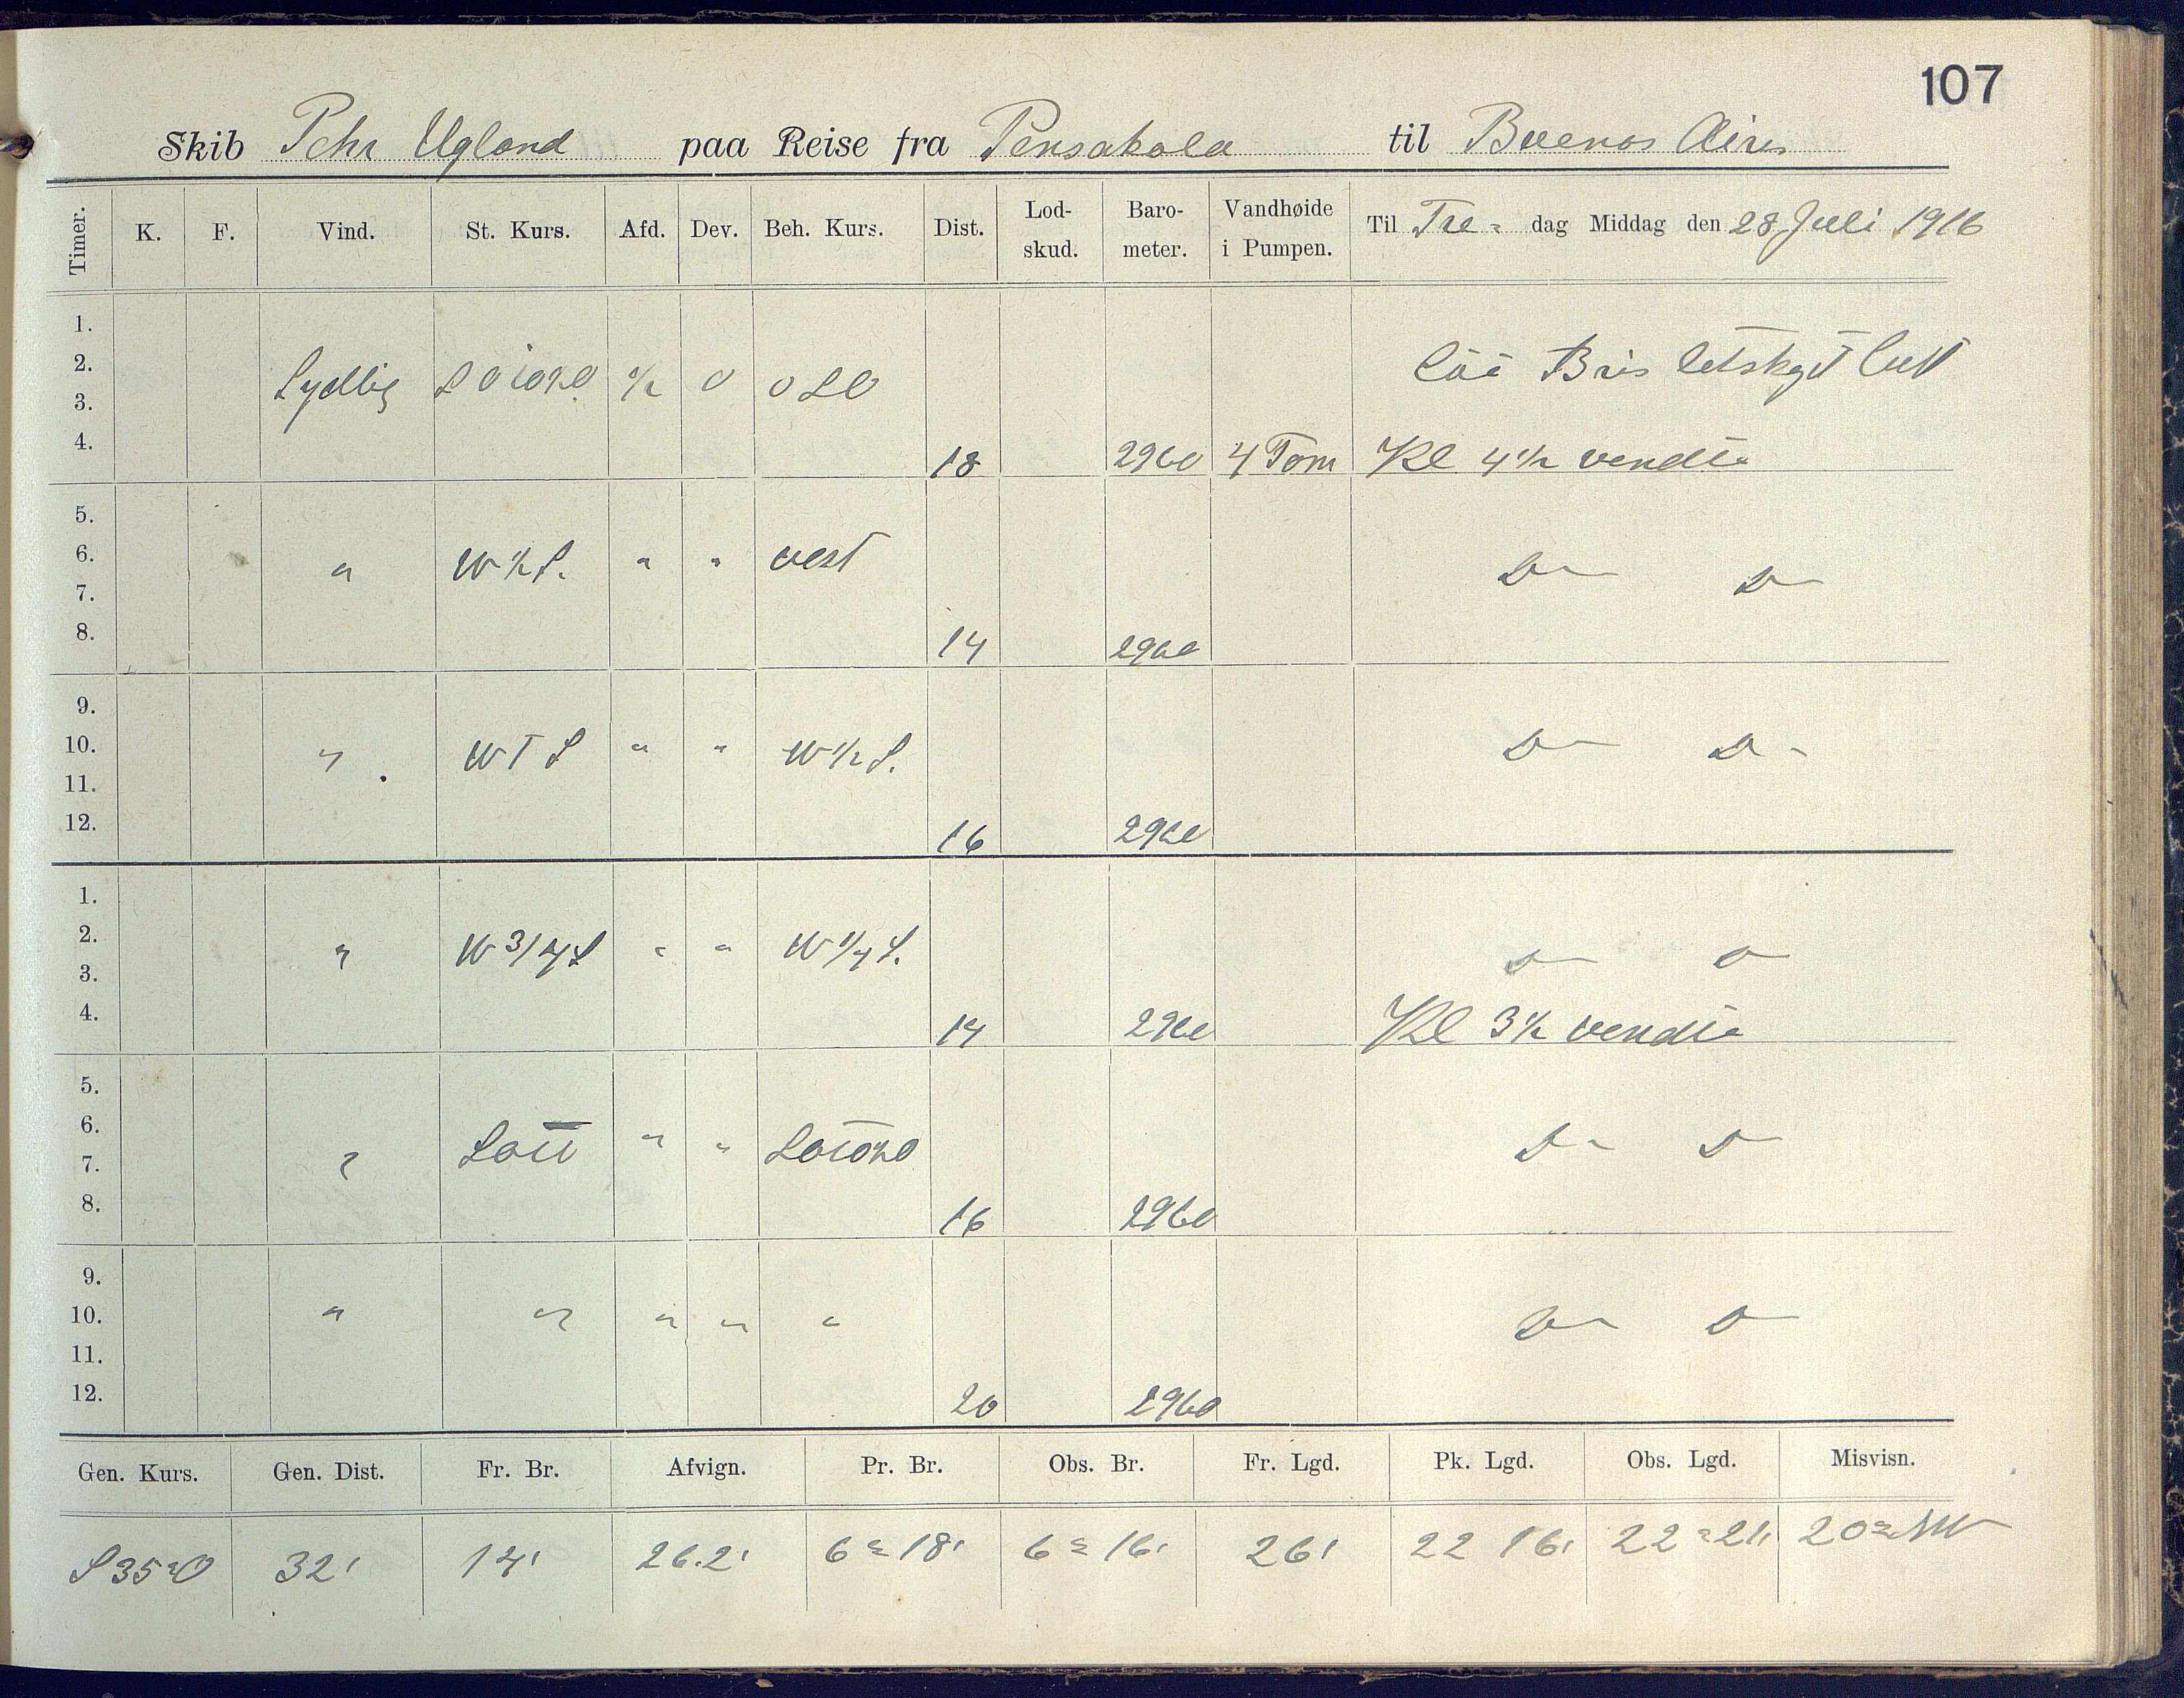 107
Skib Pehr Ugland paa Reise fra Pensakola til Buenos Aires
Timer. K. F. Vind. St. Kurs. Afd. Dev. Beh. Kurs. Dist. Lod-skud. Baro-meter. Vandhøide i Pumpen. Til Fre- dag Middag den 28 Juli 1916
1.
2. Bris letskyet luft
3. Sydlig ½ 0 OSO
4. 18 2960 4 Tom Kl 4½ vendte
5.
6. " W½S. " " vest D— D—
7.
8. 14 2960
9.
10. " WTS " " W½S. D— D-
11.
12. 16 2960
1.
2. " W 3/4 S " " W ¼ S. D— D—
3.
4. 14 2960 Kl 3½ vendte
5.
6. " " " D- D—
7.
8. 16 2960
9.
10. " " " " " D— D—
11.
12. 20 2960
Gen. Kurs. Gen. Dist. Fr. Br. Afvign. Pr. Br. Obs. Br. Fr. Lgd. Pk. Lgd. Obs. Lgd. Misvisn.
S35°O 32' 14' 26.2' 6° 18' 6° 16' 26' 22 16' 22° 21' 20° NW